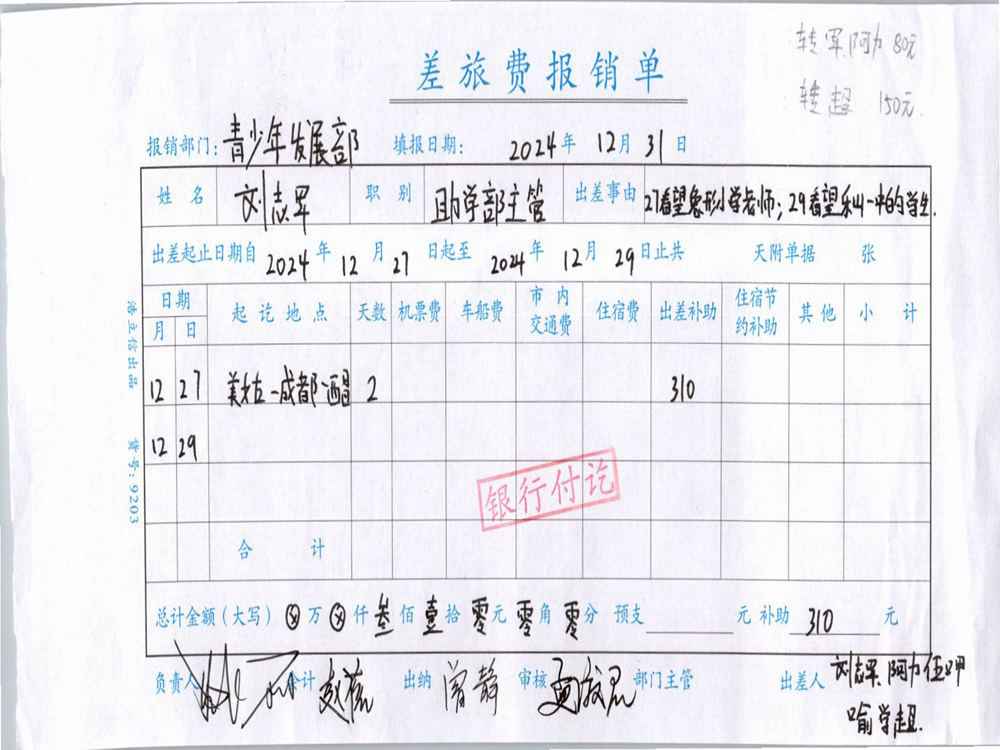 转军.阿力 80元
转超 150元.
差旅费报销单
报销部门: 青少年发展部 填报日期: 2024年 12月 31日
姓名 刘志军 职别 助学部主管 出差事由 27看望象形小学老师; 29看望乐山一中的学生.
出差起止日期自 2024年 12月 27日起至 2024年 12月 29日止共 天附单据 张
日期 起讫地点 天数 机票费 车船费 市内交通费 住宿费 出差补助 住宿节约补助 其他 小计
月 日
12 27 美姑-成都 2 310
12 29
银行付讫
合计
总计金额(大写) ⊗万⊗仟叁佰壹拾零元零角零分 预支 元 补助 310 元
负责人 会计 出纳 曾静 审核 部门主管 出差人 刘志军 阿力伍呷
喻学超.
浩立信出品 货号:9203